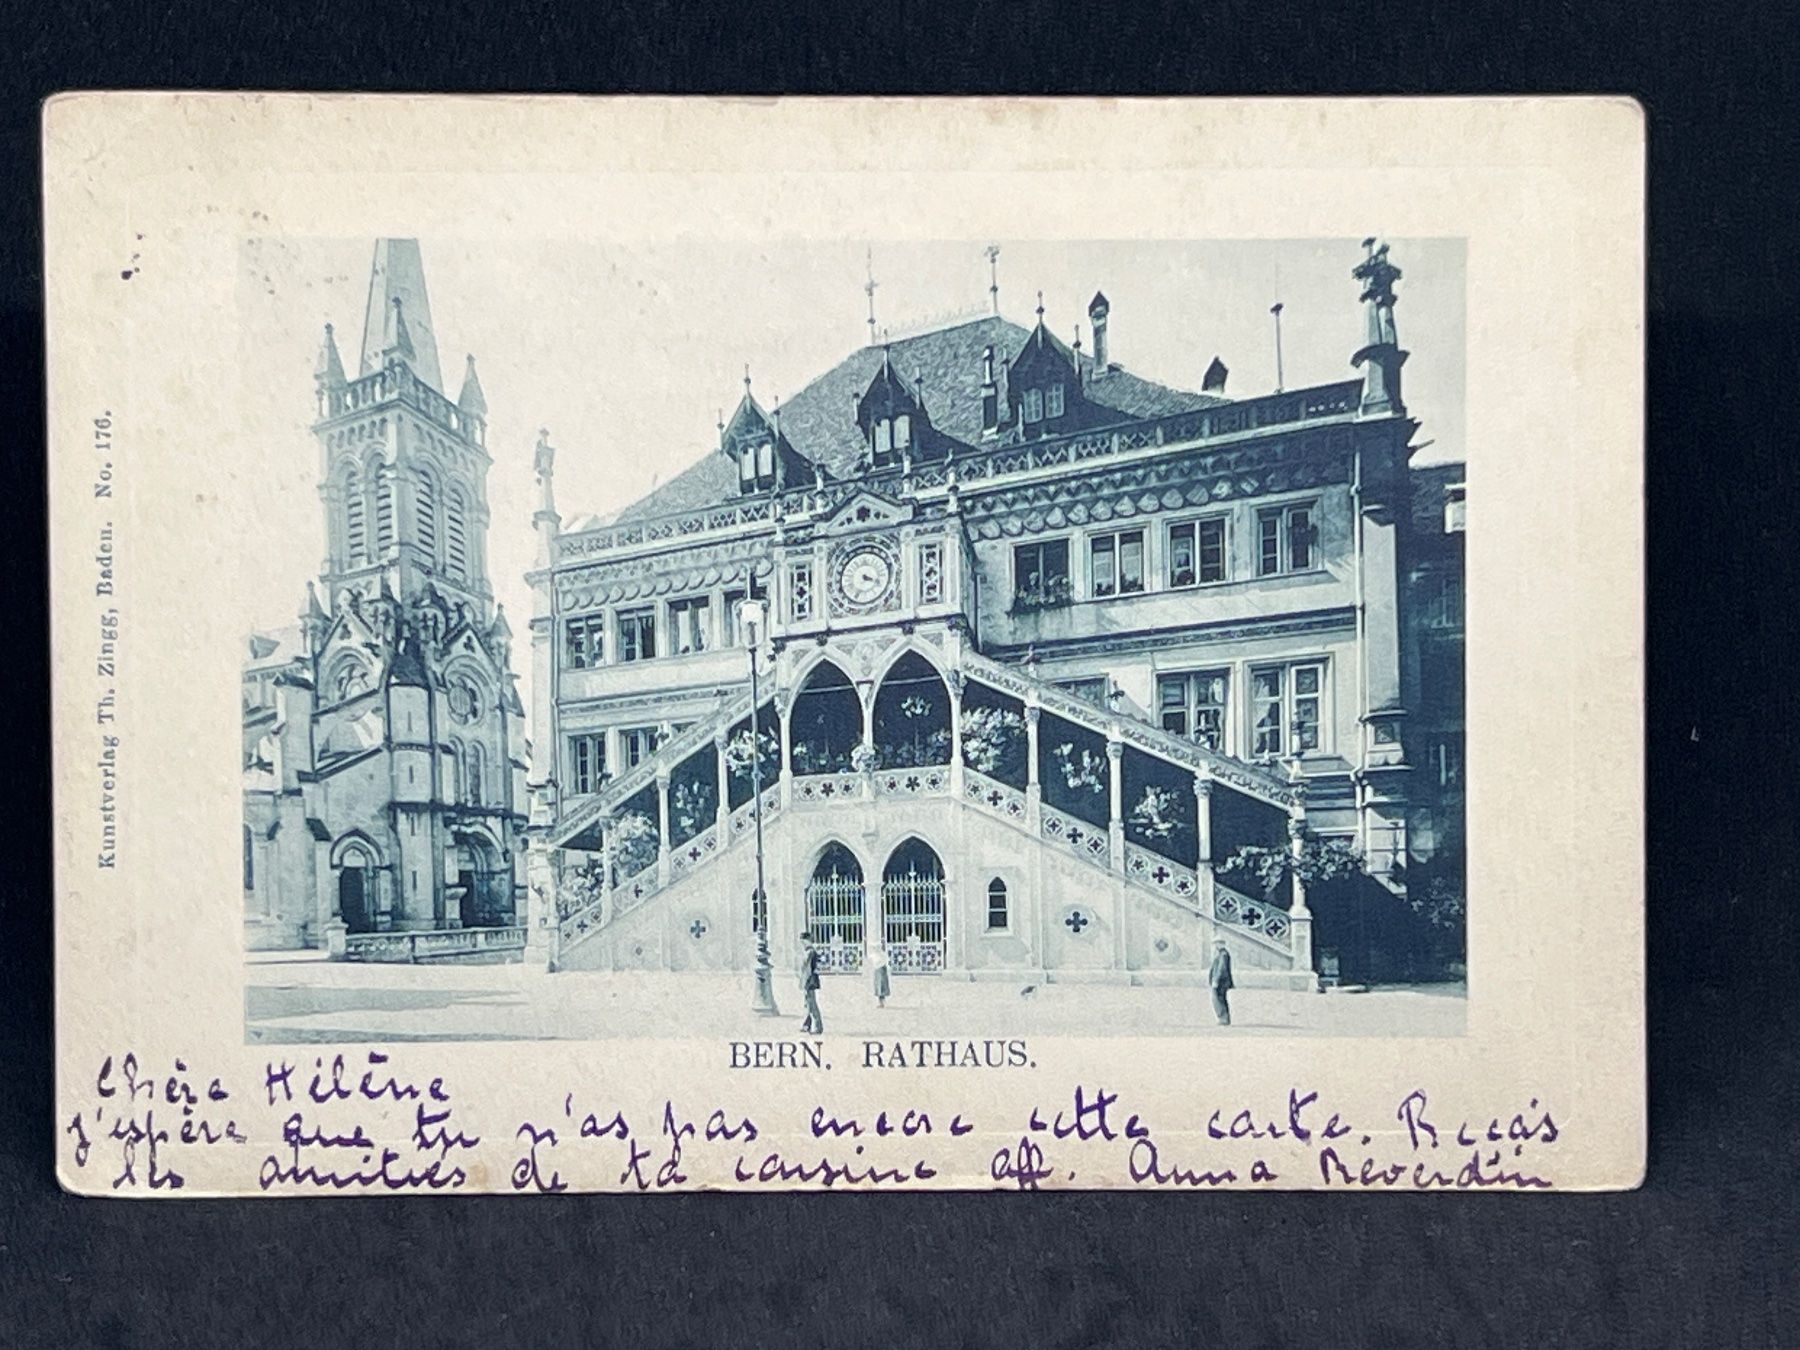 Kunstverlag Th. Zingg, Baden. No. 176.
BERN. RATHAUS.
Chère Hélène
j'espère que tu n'as pas encore cette carte. Reçois
les amitiés de ta cousine aff. Anna Reverdin